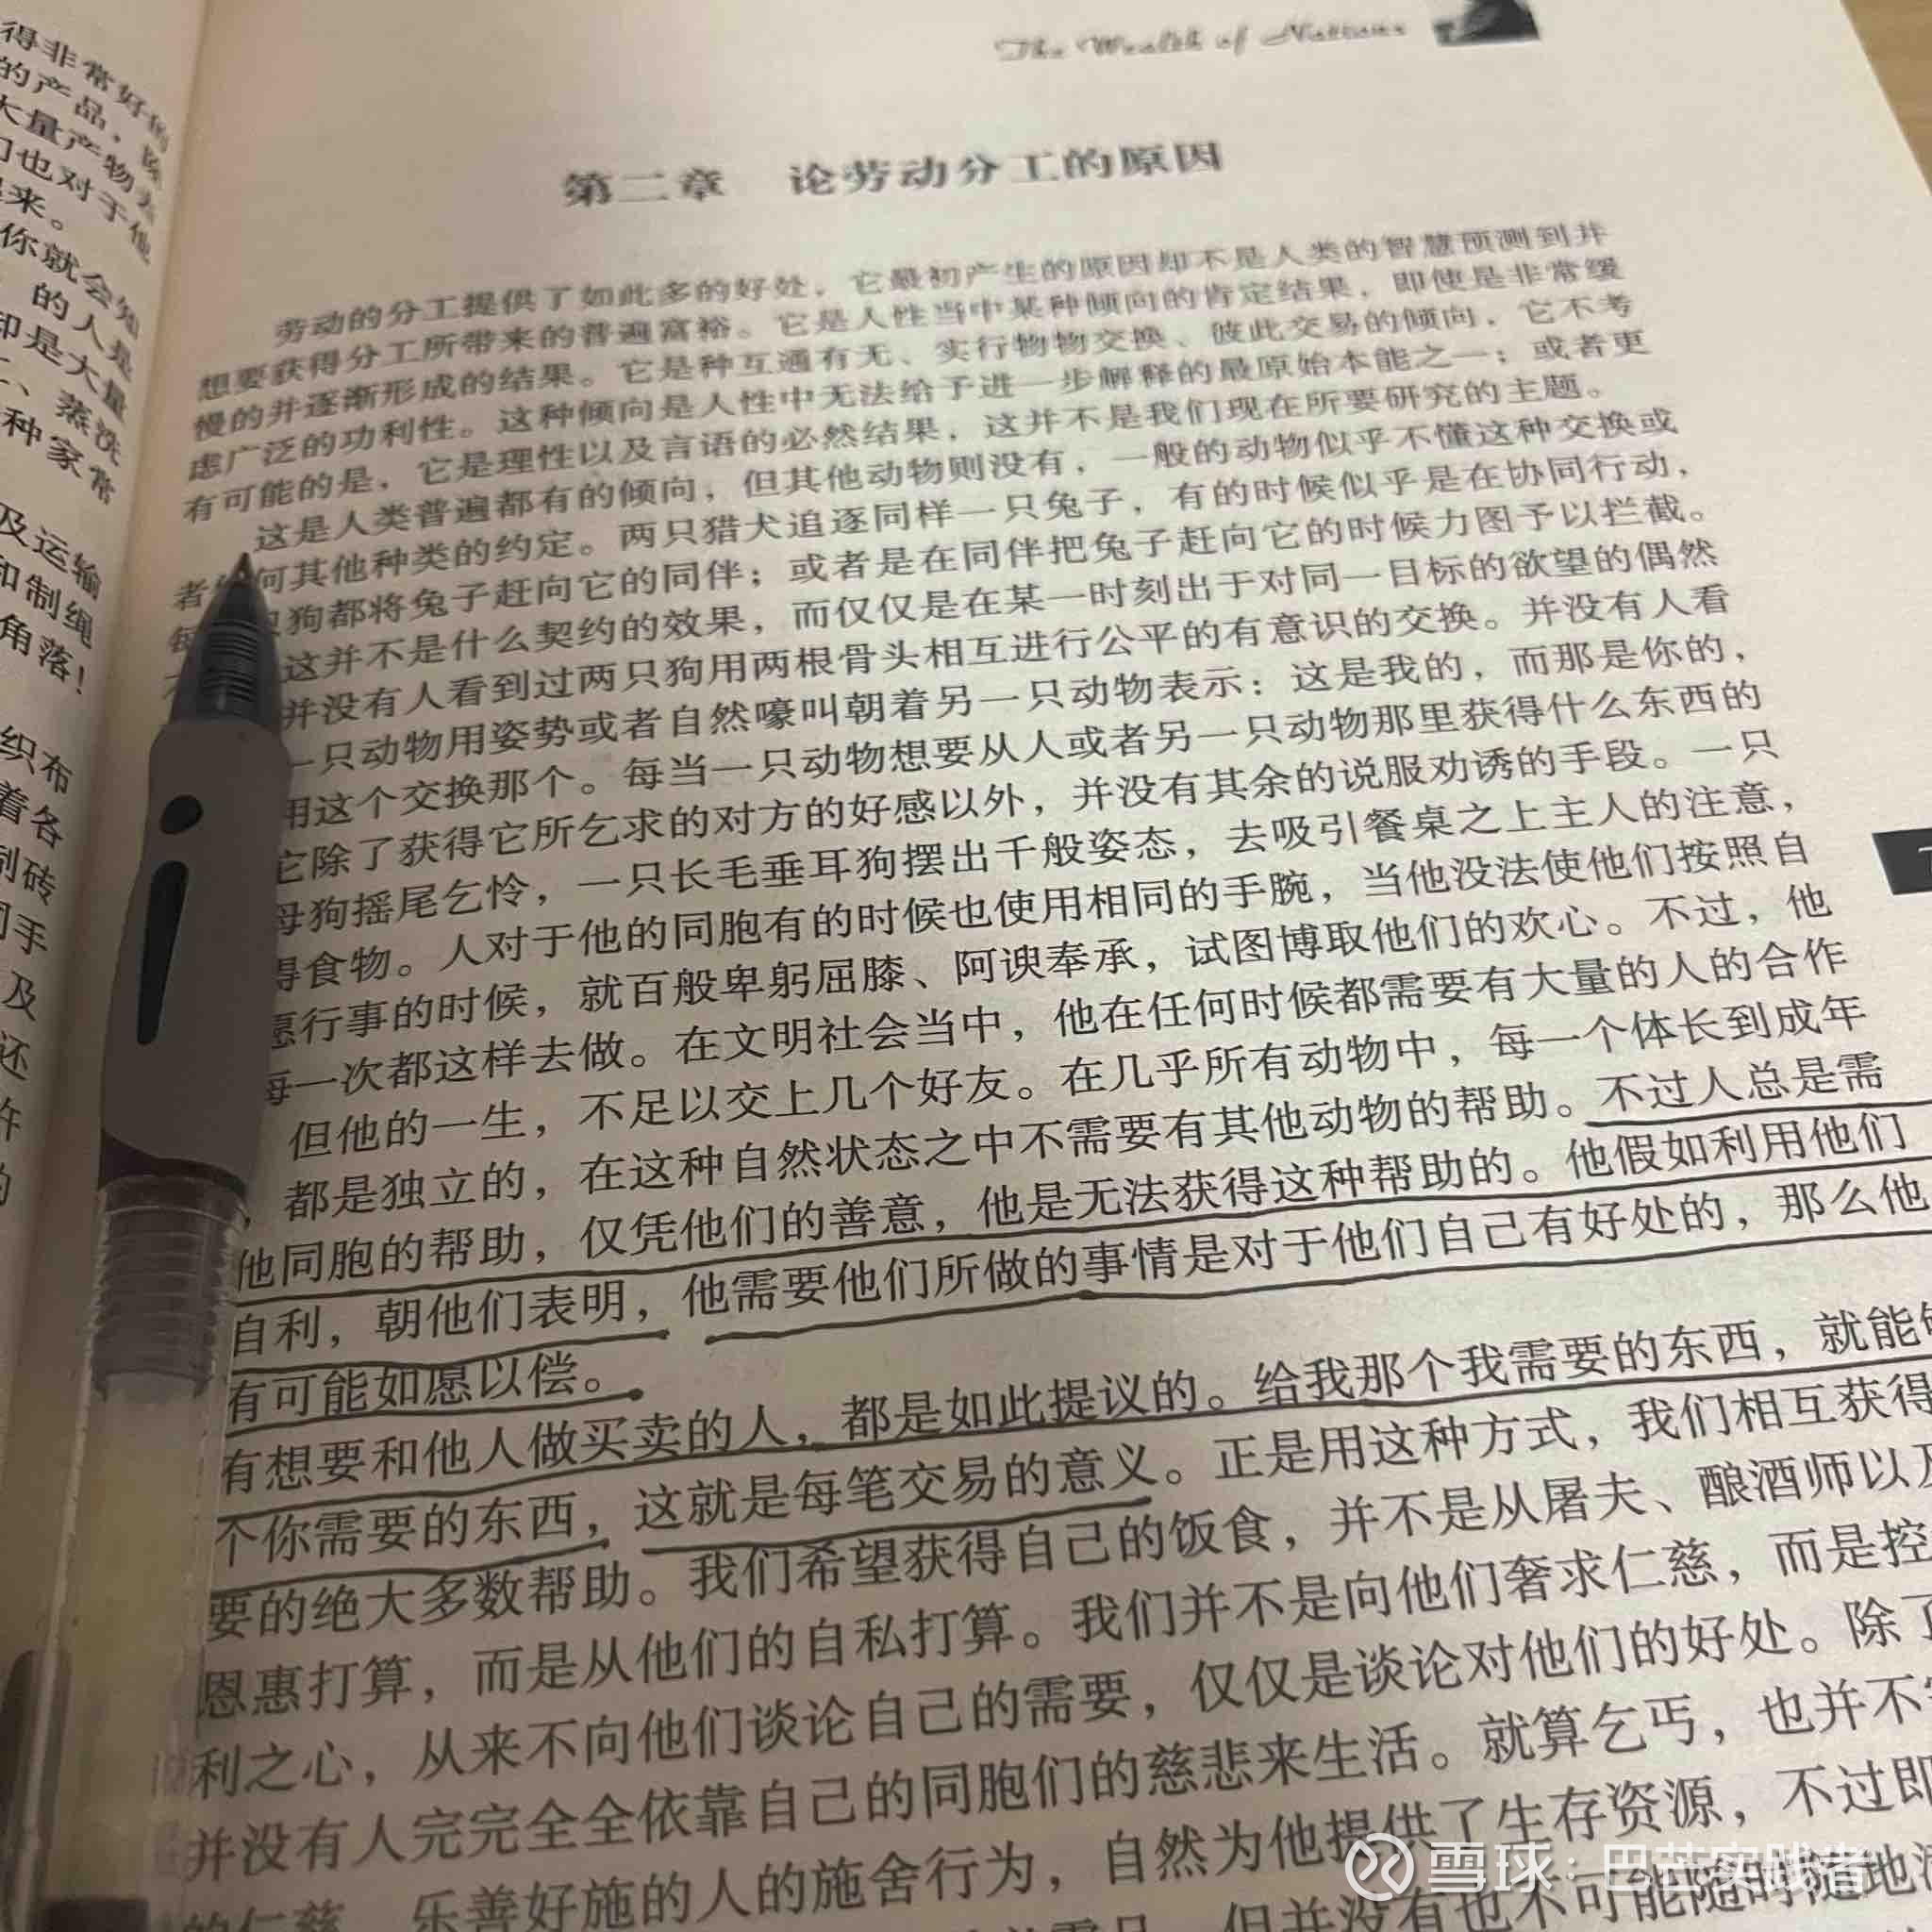 得非常好的
的产品，除
大量产物去
们也对于他
起来。
你就会知
的人是
却是大量
、蒸洗
种家常
及运输
和制绳
角落！
织布
着各
制砖
同手
及
还
许
The Wealth of Nations
第二章 论劳动分工的原因
劳动的分工提供了如此多的好处，它最初产生的原因却不是人类的智慧预测到并
想要获得分工所带来的普遍富裕。它是人性当中某种倾向的肯定结果，即使是非常缓
慢的并逐渐形成的结果。它是种互通有无、实行物物交换、彼此交易的倾向，它不考
虑广泛的功利性。这种倾向是人性中无法给予进一步解释的最原始本能之一；或者更
有可能的是，它是理性以及言语的必然结果，这并不是我们现在所要研究的主题。
这是人类普遍都有的倾向，但其他动物则没有，一般的动物似乎不懂这种交换或
者 何其他种类的约定。两只猎犬追逐同样一只兔子，有的时候似乎是在协同行动，
每 只狗都将兔子赶向它的同伴；或者是在同伴把兔子赶向它的时候力图予以拦截。
这并不是什么契约的效果，而仅仅是在某一时刻出于对同一目标的欲望的偶然
并没有人看到过两只狗用两根骨头相互进行公平的有意识的交换。并没有人看
一只动物用姿势或者自然嚎叫朝着另一只动物表示：这是我的，而那是你的，
用这个交换那个。每当一只动物想要从人或者另一只动物那里获得什么东西的
它除了获得它所乞求的对方的好感以外，并没有其余的说服劝诱的手段。一只
母狗摇尾乞怜，一只长毛垂耳狗摆出千般姿态，去吸引餐桌之上主人的注意，
得食物。人对于他的同胞有的时候也使用相同的手腕，当他没法使他们按照自
愿行事的时候，就百般卑躬屈膝、阿谀奉承，试图博取他们的欢心。不过，他
每一次都这样去做。在文明社会当中，他在任何时候都需要有大量的人的合作
但他的一生，不足以交上几个好友。在几乎所有动物中，每一个体长到成年
，都是独立的，在这种自然状态之中不需要有其他动物的帮助。不过人总是需
他同胞的帮助，仅凭他们的善意，他是无法获得这种帮助的。他假如利用他们
自利，朝他们表明，他需要他们所做的事情是对于他们自己有好处的，那么他
有可能如愿以偿。
有想要和他人做买卖的人，都是如此提议的。给我那个我需要的东西，就能
个你需要的东西，这就是每笔交易的意义。正是用这种方式，我们相互获得
要的绝大多数帮助。我们希望获得自己的饭食，并不是从屠夫、酿酒师以及
恩惠打算，而是从他们的自私打算。我们并不是向他们奢求仁慈，而是控
利之心，从来不向他们谈论自己的需要，仅仅是谈论对他们的好处。除了
并没有人完完全全依靠自己的同胞们的慈悲来生活。就算乞丐，也并不
的仁慈。乐善好施的人的施舍行为，自然为他提供了生存资源，不过即
但并没有也不可能随时随地
雪球：巴芒实践者